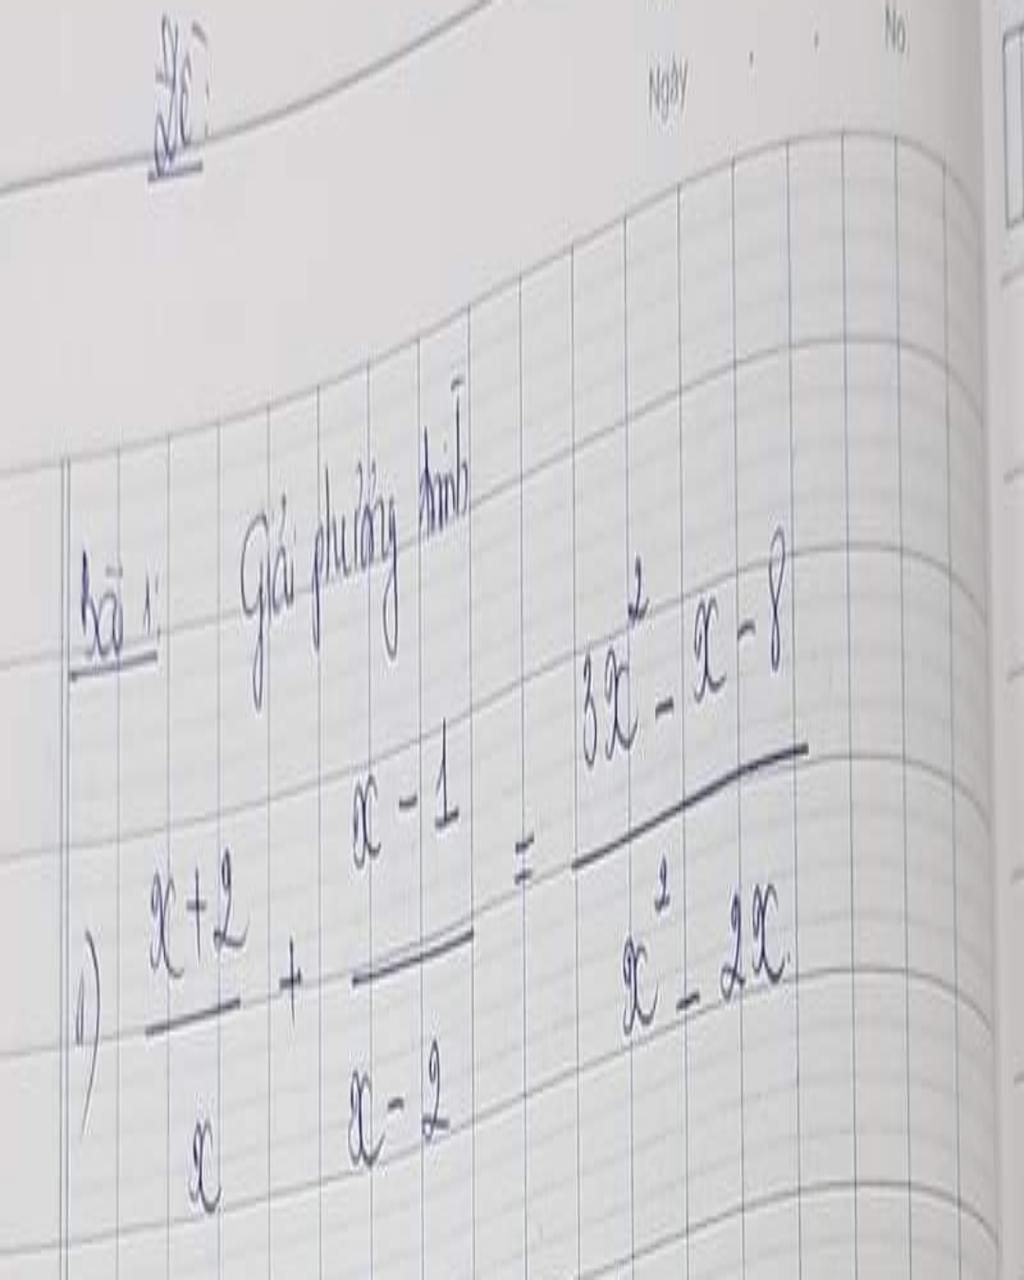 Đề:
Ngày
No.
Bài 1: Giải phương trình
1) x+2/x + x-1/x-2 = 3x²-x-8/x²-2x